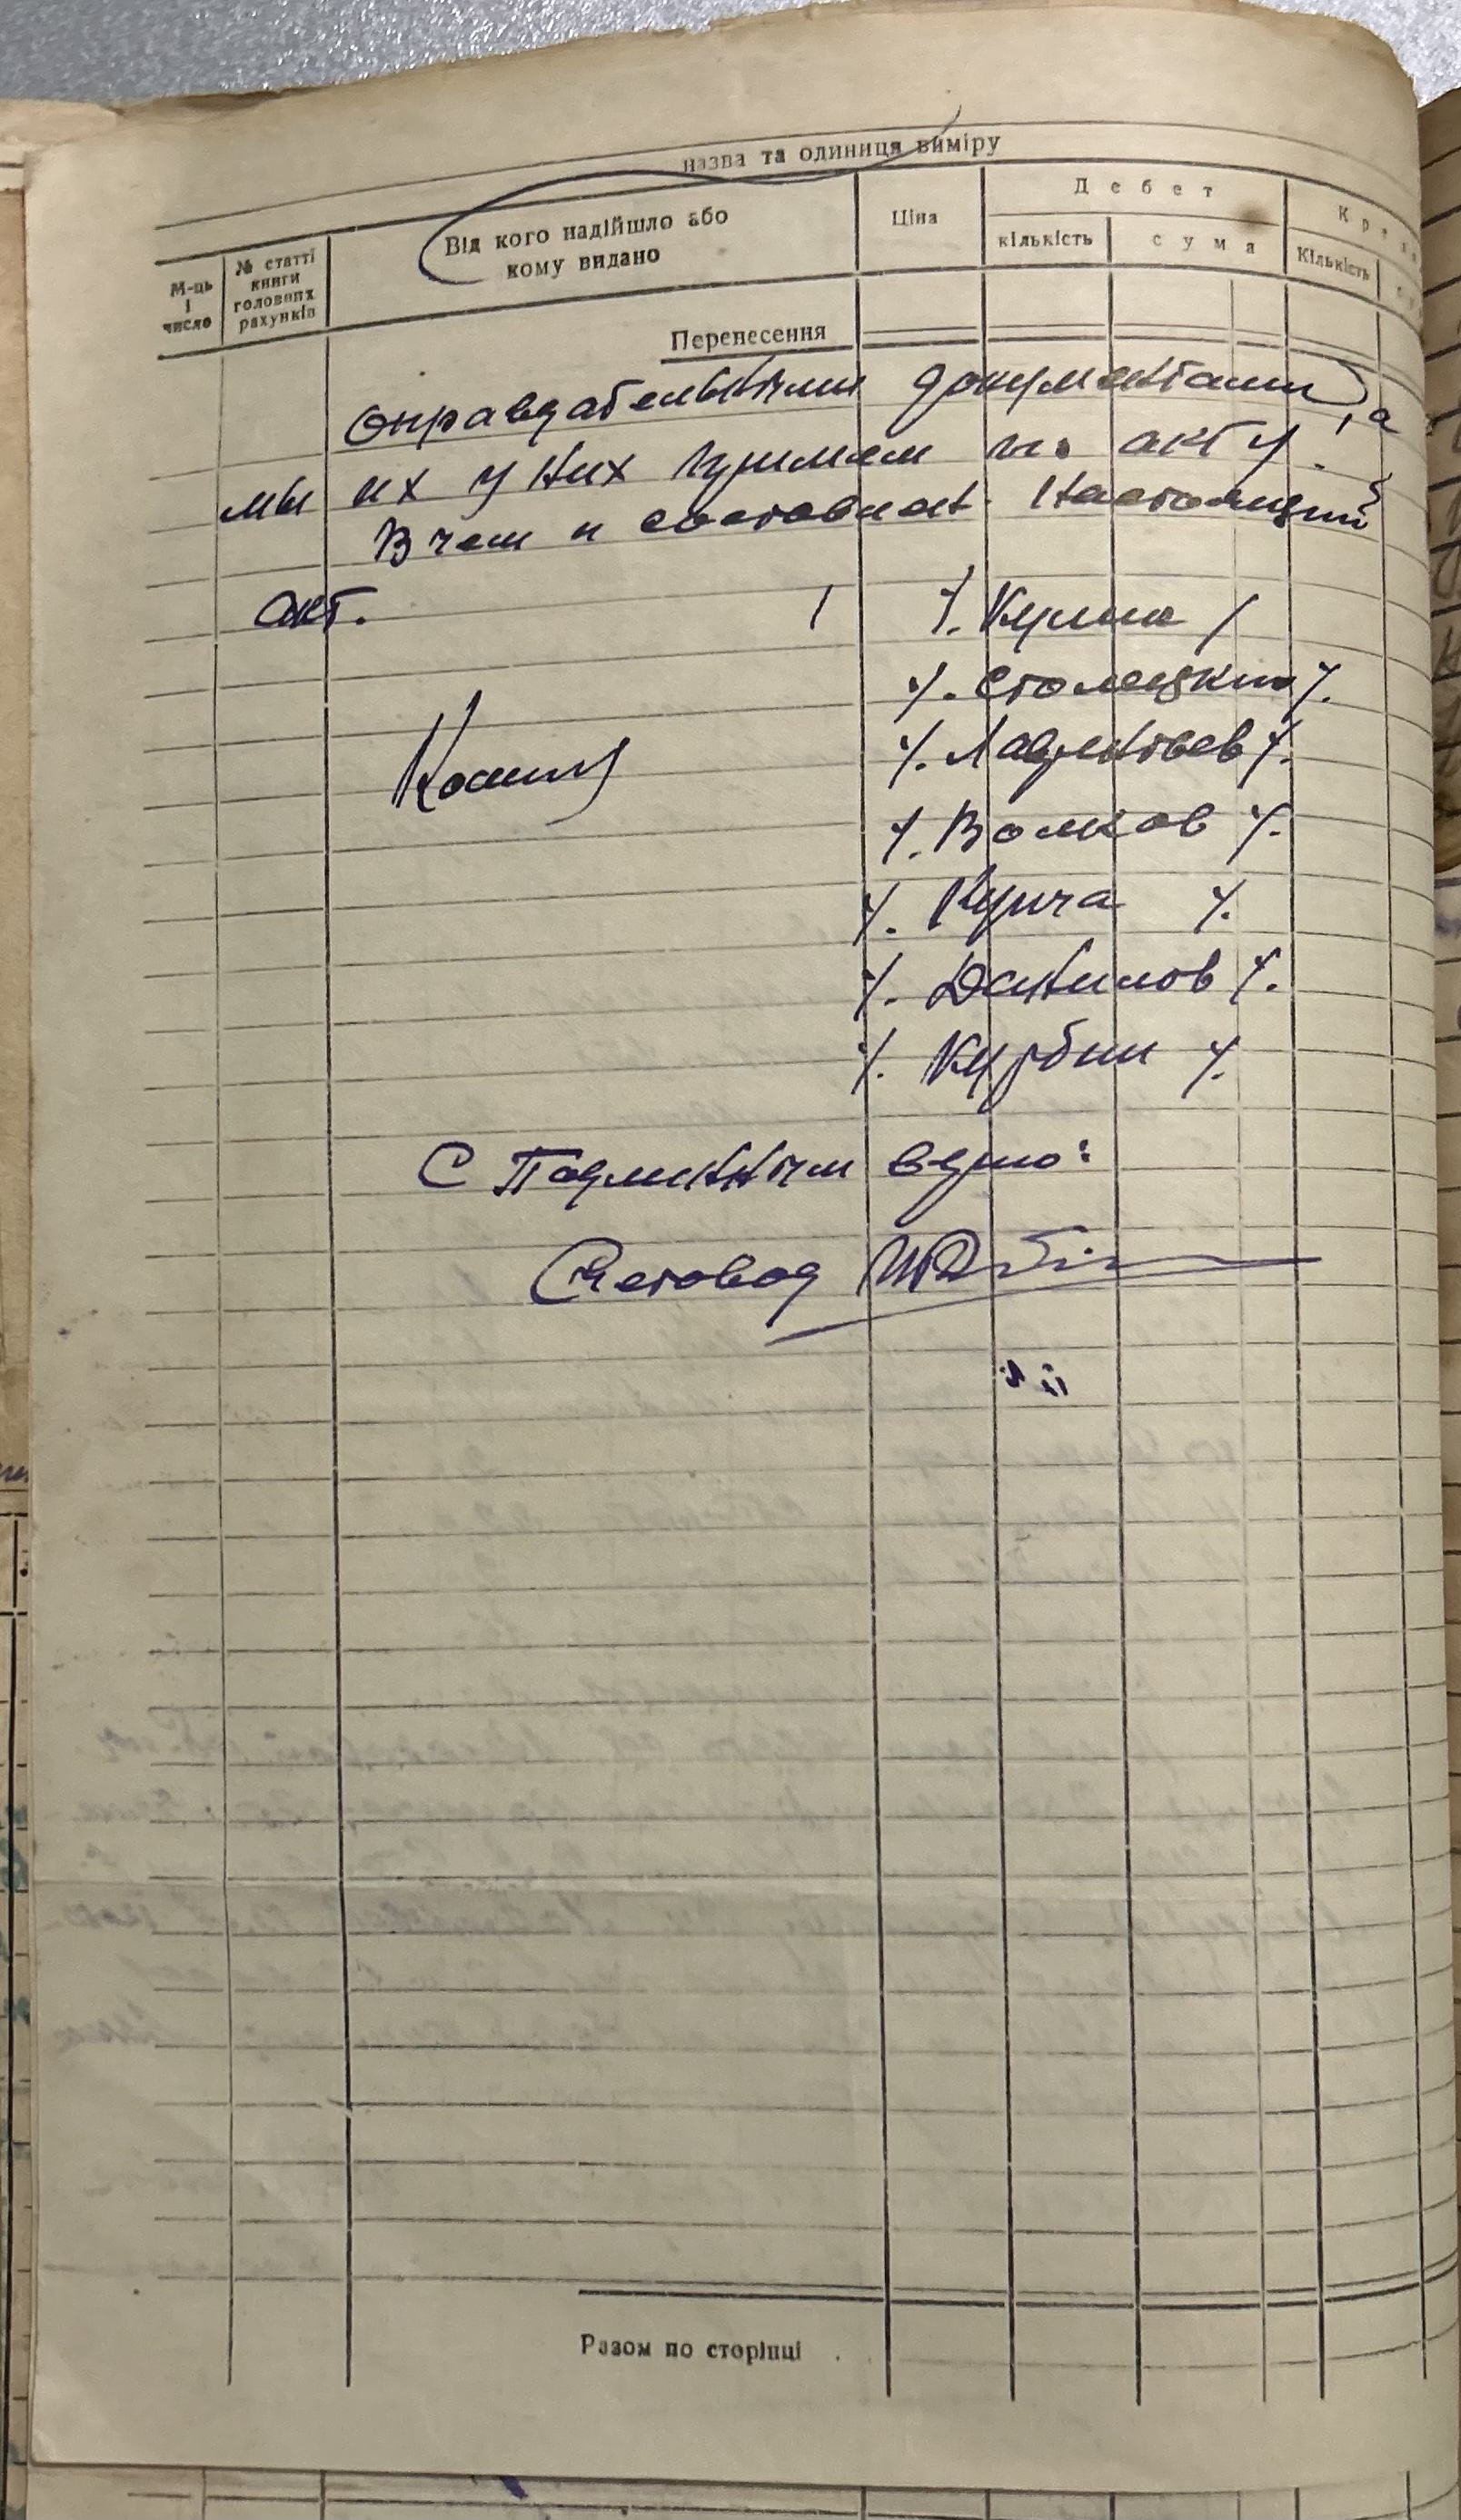 назва та одиниця виміру
М-ць і число
№ статті книги головних рахунків
Від кого надійшло або кому видано
Ціна
Дебет
кількість
сума
Кількість
Перенесення
оправдательными документами, а
мы их у них примем по акту.
В чем и составлен настоящий
акт.
Столецкий
Лаврентьев
Волков
Данилов
Курбан
С Подлинным верно:
Счетовод
Разом по сторінці